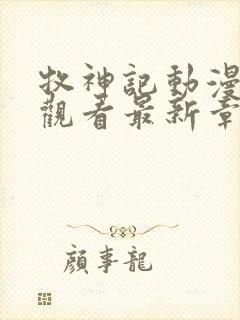 牧神記動漫
觀看最新章
顔事龍